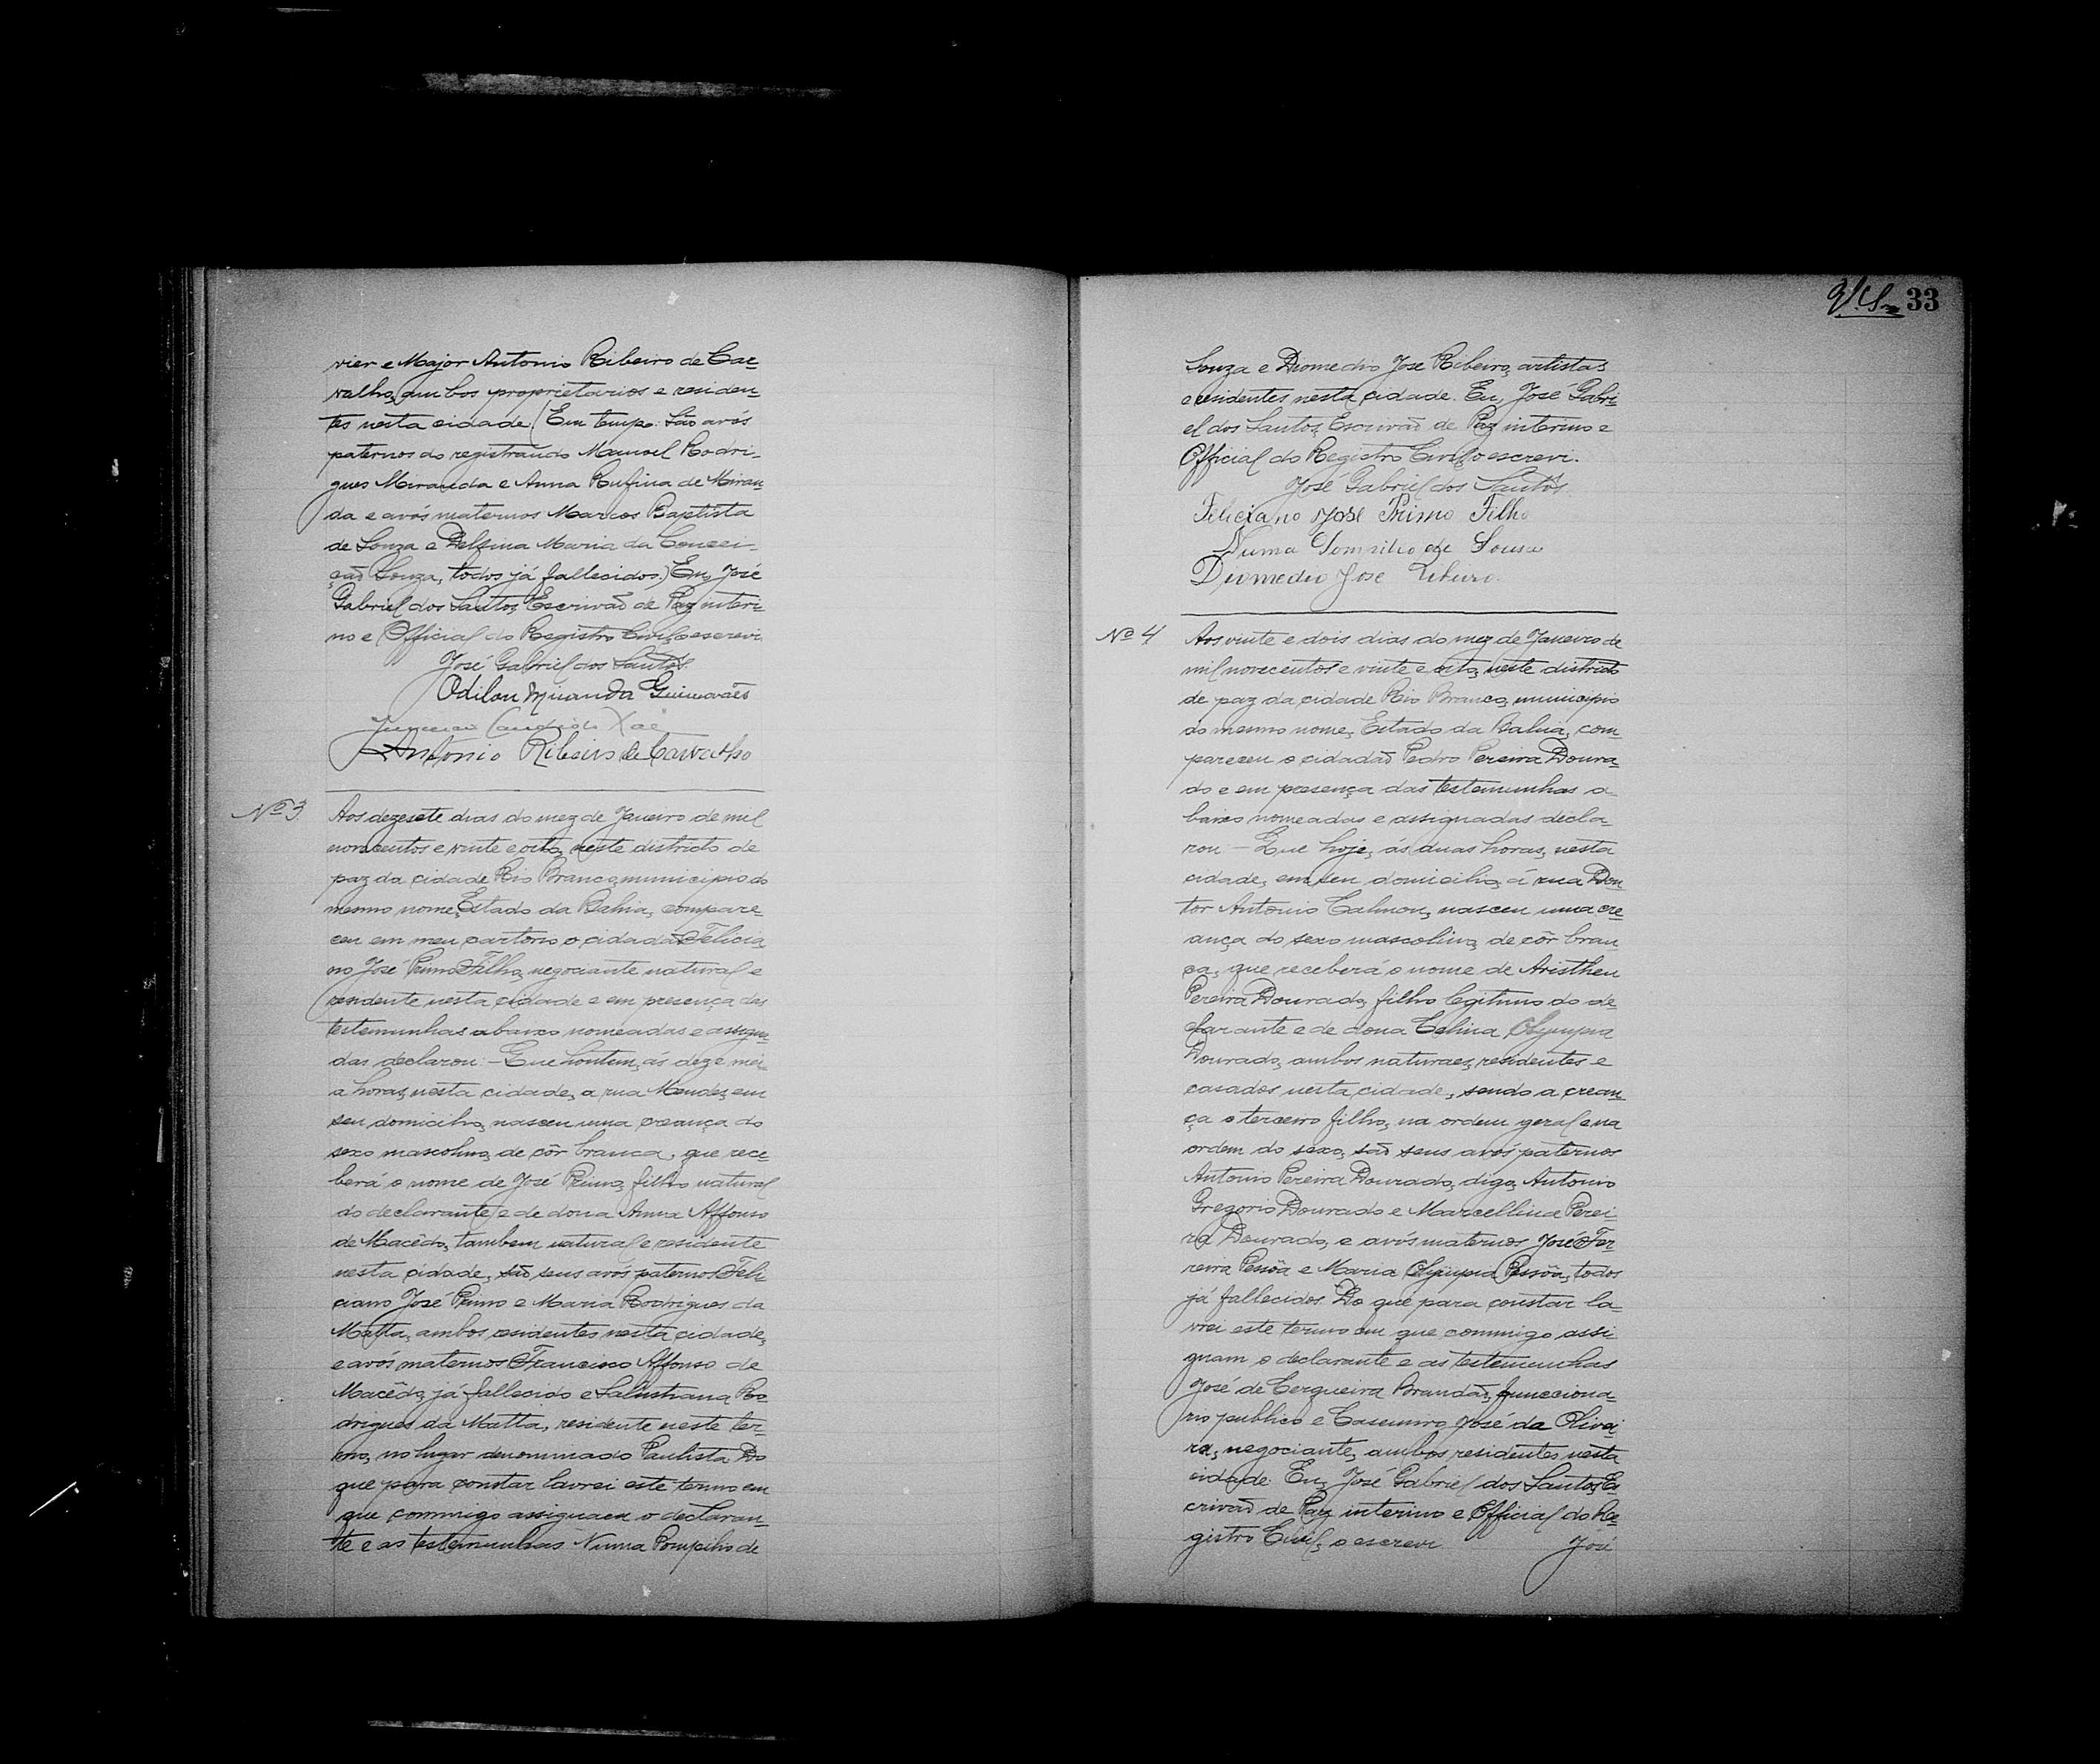 vier e Major Antonio Ribeiro de Car-
valho, ambos proprietarios e residen-
tes nesta cidade (Em tempo: São avós
paternos do registrando Manoel Rodri-
gues Miranda e Anna Rufina de Miran-
da e avós maternos Marcos Baptista
de Souza e Delfina Maria da Concei-
ção Souza, todos já fallecidos.) Eu, José
Gabriel dos Santos, Escrivão de Paz interi-
no e Official do Registro Civil, o escrevi.
José Gabriel dos Santos
Odilon Miranda Guimarães
Candido Xa
Antonio Ribeiro de Carvalho
Nº 3.
Aos dezesete dias do mez de Janeiro de mil
novecentos e vinte e oito, neste districto de
paz da cidade Rio Branco, municipio do
mesmo nome, Estado da Bahia, compare-
ceu em meu cartorio o cidadão Felicia-
no José Primo Filho, negociante natural e
residente nesta cidade e em presença das
testemunhas abaixo nomeadas e assigna-
das declarou: - Que hontem, ás dez e mei-
a horas, nesta cidade, a rua Mendes, em
seu domicilio, nasceu uma creança do
sexo masculino, de côr branca, que rece-
berá o nome de José Primo, filho natural
do declarante e de dona Anna Affonso
de Macêdo, tambem natural e residente
nesta cidade, são seus avós paternos Feli-
ciano José Primo e Maria Rodrigues da
Matta, ambos residentes nesta cidade,
e avós maternos Francisco Affonso de
Macêdo, já fallecido e Salustiana Ro-
drigues da Matta, residente neste ter-
mo, no lugar denominado Paulista. Do
que para constar lavrei este termo em
que commigo assignam o declaran-
te e as testemunhas Numa Pompilio de
33
Souza e Diomedio José Ribeiro, artistas
e residentes nesta cidade. Eu, José Gabri-
el dos Santos, Escrivão de Paz interino e
Official do Registro Civil, o escrevi.
José Gabriel dos Santos.
Feliciano José Primo Filho
Numa Pompilio de Sousa
Diomedio José Ribeiro.
Nº 4
Aos vinte e dois dias do mez de Janeiro de
mil novecentos e vinte e oito, neste districto
de paz da cidade Rio Branco, municipio
do mesmo nome, Estado da Bahia, com-
pareceu o cidadão Pedro Pereira Doura-
do e em presença das testemunhas a-
baixo nomeadas e assignadas decla-
rou - Que hoje, ás duas horas, nesta
cidade, em seu domicilio, á rua Dou-
tor Antonio Calmon, nasceu uma cre-
ança do sexo masculino, de côr bran-
ca, que receberá o nome de Aristheu
Pereira Dourado, filho legitimo do de-
clarante e de dona Celina Olympia
Dourado, ambos naturaes, residentes e
casados nesta cidade, sendo a crean-
ça o terceiro filho, na ordem geral e na
ordem do sexo, são seus avós paternos
Antonio Pereira Dourado, digo, Antonio
Gregorio Dourado e Marcellina Perei-
ra Dourado, e avós maternos José Fer-
reira Pessôa e Maria Olympia Pessôa, todos
já fallecidos. Do que para constar la-
vrei este termo em que commigo assi-
gnam o declarante e as testemunhas
José de Cerqueira Brandão, funcciona-
rio publico e Casemiro José de Olivei-
ra, negociante, ambos residentes nesta
cidade. Eu, José Gabriel dos Santos, Es-
crivão de Paz interino e Official do Re-
gistro Civil, o escrevi. José